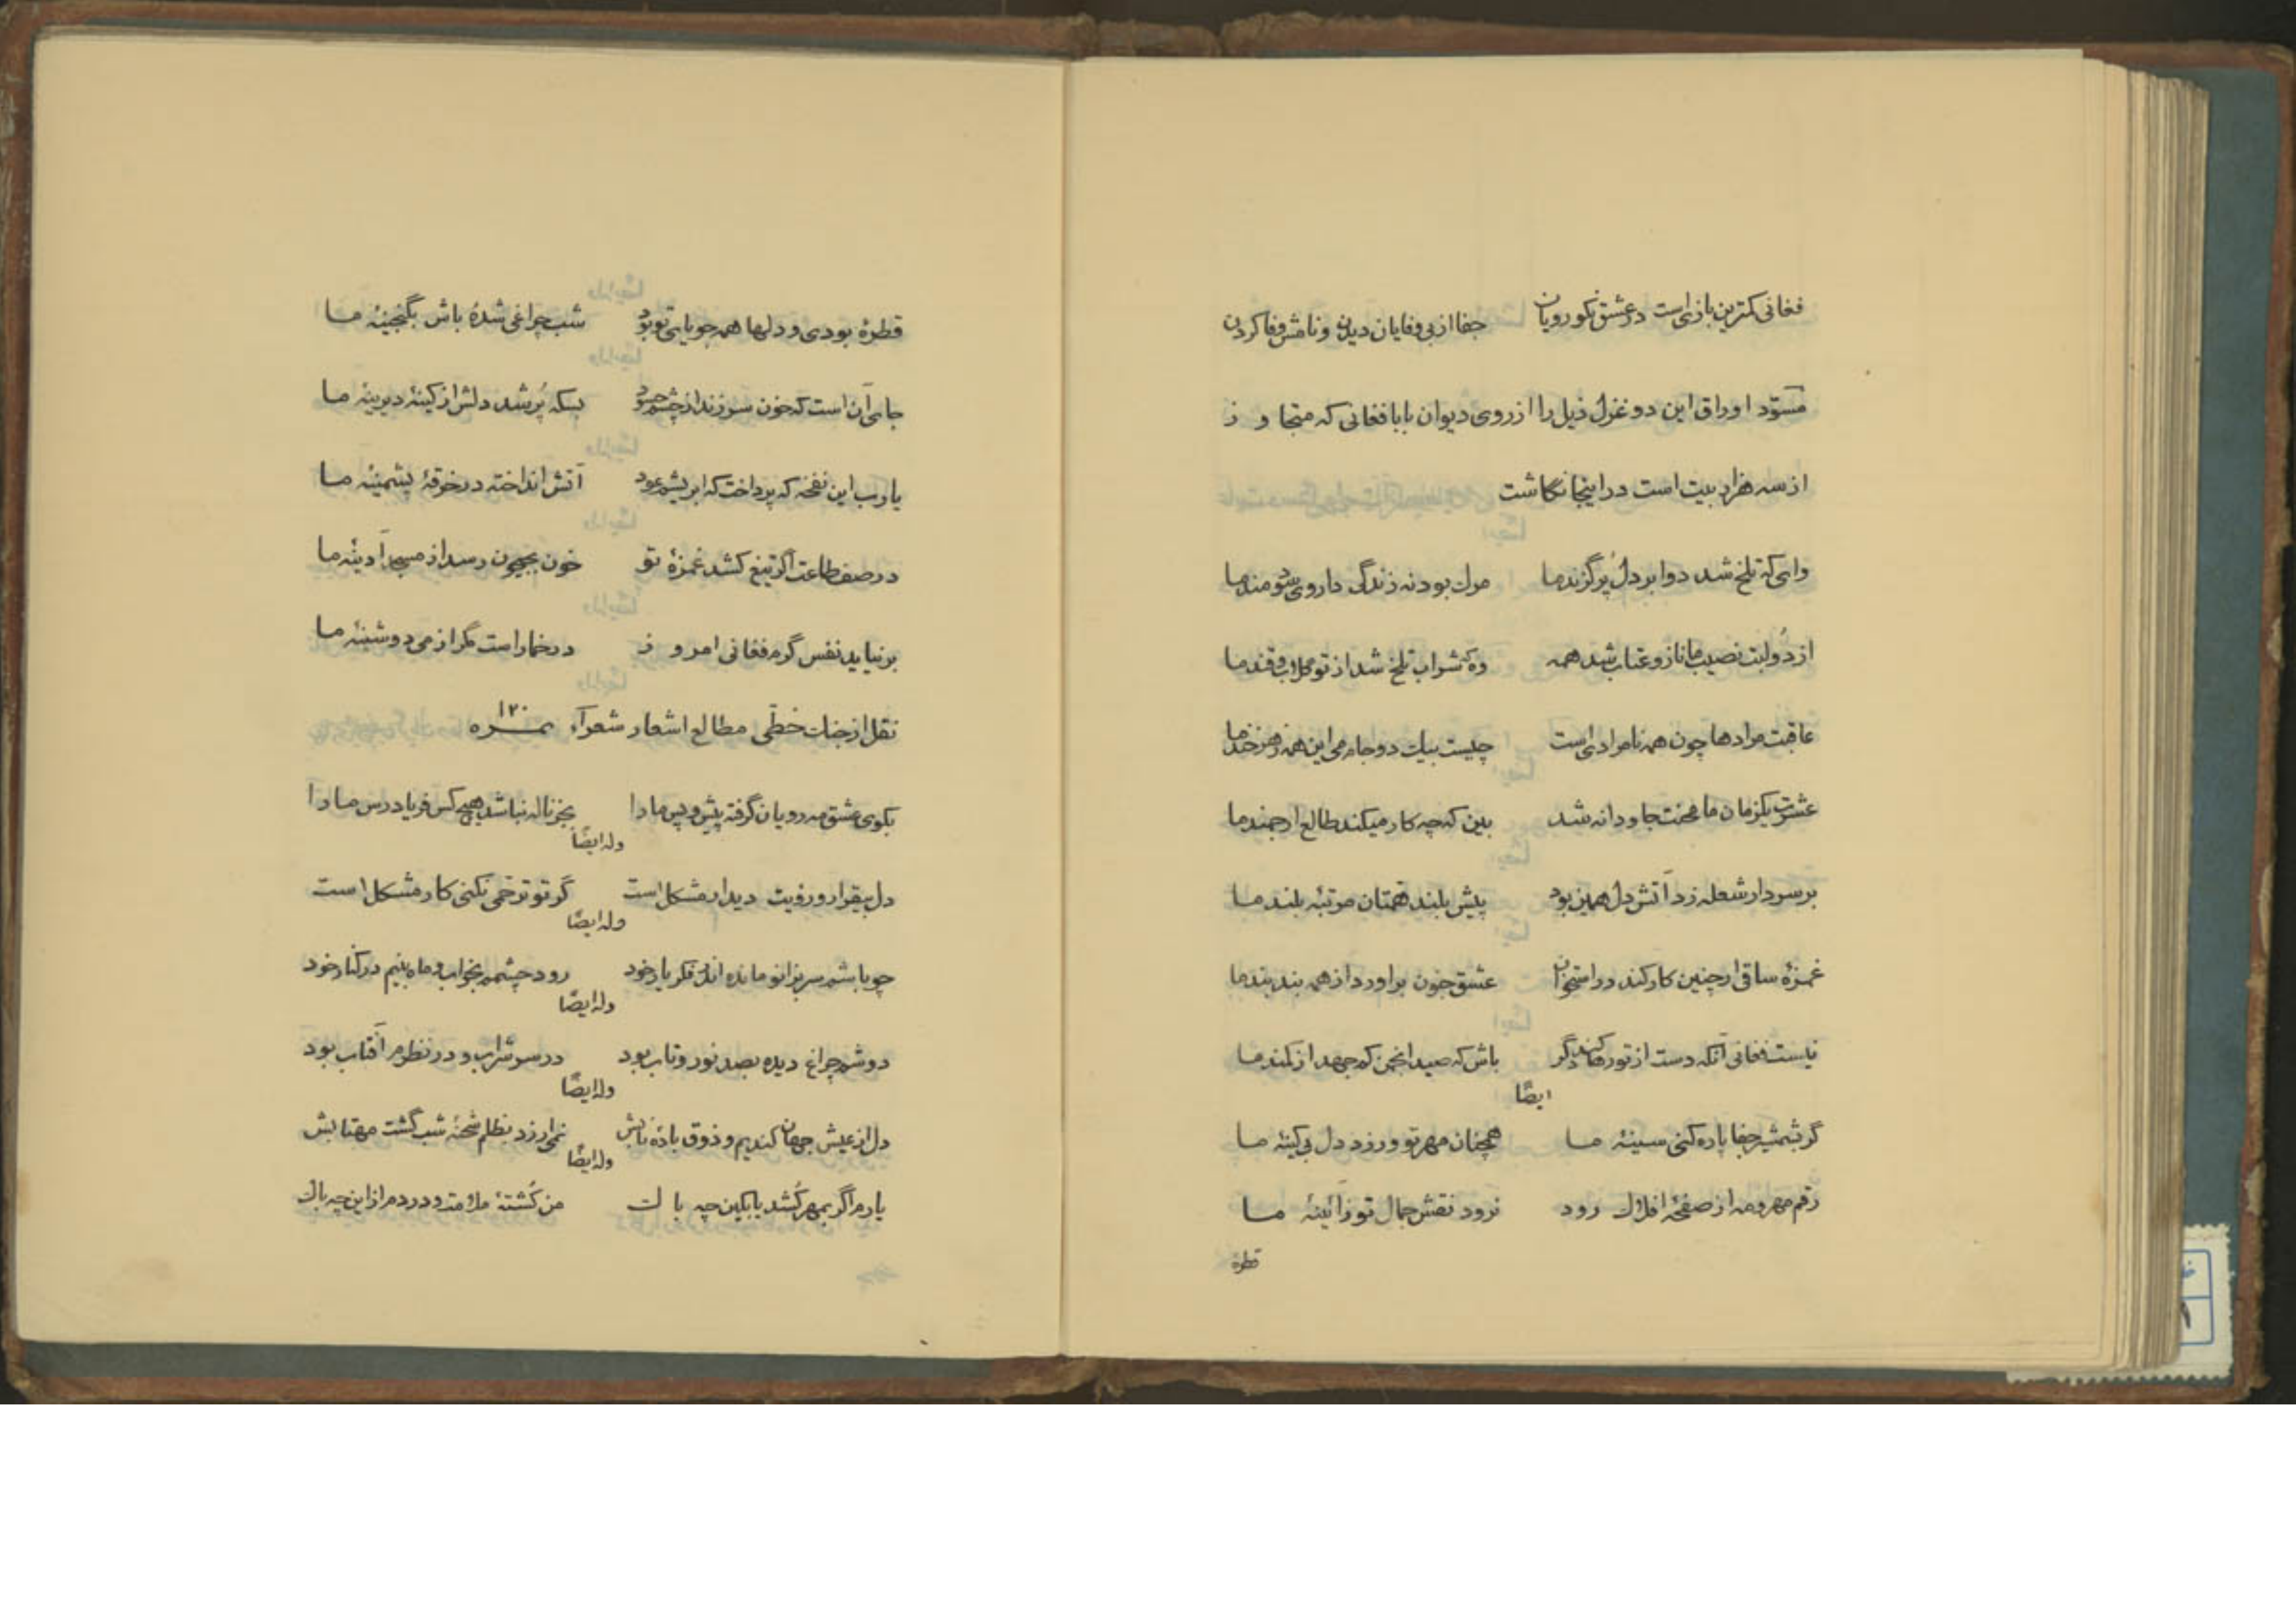 فغانی کمترین بازی است در عشق نکورویان جفا از بی وفایان دیدن و نامش وفا کردن
مسوّد اوراق این دو غزل ذیل را از روی دیوان بابا فغانی که متجاوز
از سه هزار بیت است در اینجا نگاشت
وای که تلخ شد دوا بر دل پرگزند ما مرك بود نه زندگی داروی سودمند ما
از دو لبت نصیب ما ناز و عتاب شد همه وه که شراب تلخ شد از تو گلاب و قند ما
عاقبت مرادها چون همه نامرادی است چیست بیك دو جام می این همه زهرخند ما
عشرت یکزمان ما محنت جاودانه شد بین که چه کار میکند طالع ارجمند ما
بر سر دار شعله زد آتش دل همین بود پیش بلند همتان مرتبهٔ بلند ما
غمزهٔ ساقی ار چنین کار کند در استخوان عشق خون براورد از همه بند بند ما
نیست فغانی آنکه دست از تو رها کند دگر باش که صید انجمن که جهد از کمند ما
ایضًا
گر بشمشیر جفا پاره کنی سینهٔ ما همچنان مهر تو ورزد دل بی کینهٔ ما
رقم مهر و مه از صفحهٔ افلاك رود نرود نقش جمال تو ز آئینهٔ ما
قطرهٔ
قطرهٔ بودی و دلها همه جویای تو بود شب چراغی شدهٔ باش بگنجینهٔ ما
جای آن است که خون سر زند از چشم حسود بسکه پُر شد دلش از کینهٔ دیرینهٔ ما
یارب این نغمه که پرداخت که ابریشم عود آتش انداخته در خرقهٔ پشمینهٔ ما
در صف طاعت اگر تیغ کشد غمزهٔ تو خون بجیحون رسد از مسجد آدینهٔ ما
برنیاید نفس گرم فغانی امروز در خمار است مگر از می دوشینهٔ ما
نقل از جنات خطّی مطالع اشعار شعرآء نمره ۱۲۰
بکوی عشق مه رویان گرفته پیش و پس ما را بجز ناله نباشد هیچ کس فریادرس ما را
وله ایضًا
دل بیقرار و رؤیت دیدار مشکل است گر تو ترحمی نکنی کار مشکل است
وله ایضًا
چو باشم سر بزانو مانده اندر فکر یار خود رود چشمم بخواب و ماه بینم در کنار خود
وله ایضًا
دوشم چراغ دیده بصد نور و تاب بود در سر شراب و در نظرم آفتاب بود
وله ایضًا
دل از عیش جهان کندیم و ذوق بادهٔ نابش نمی ارزد بظلم شحنهٔ شب گشت مهتابش
وله ایضًا
یارم اگر بمهر کُشد یا بکین چه باك من کُشتهٔ ملامت و دردم از این چه باك